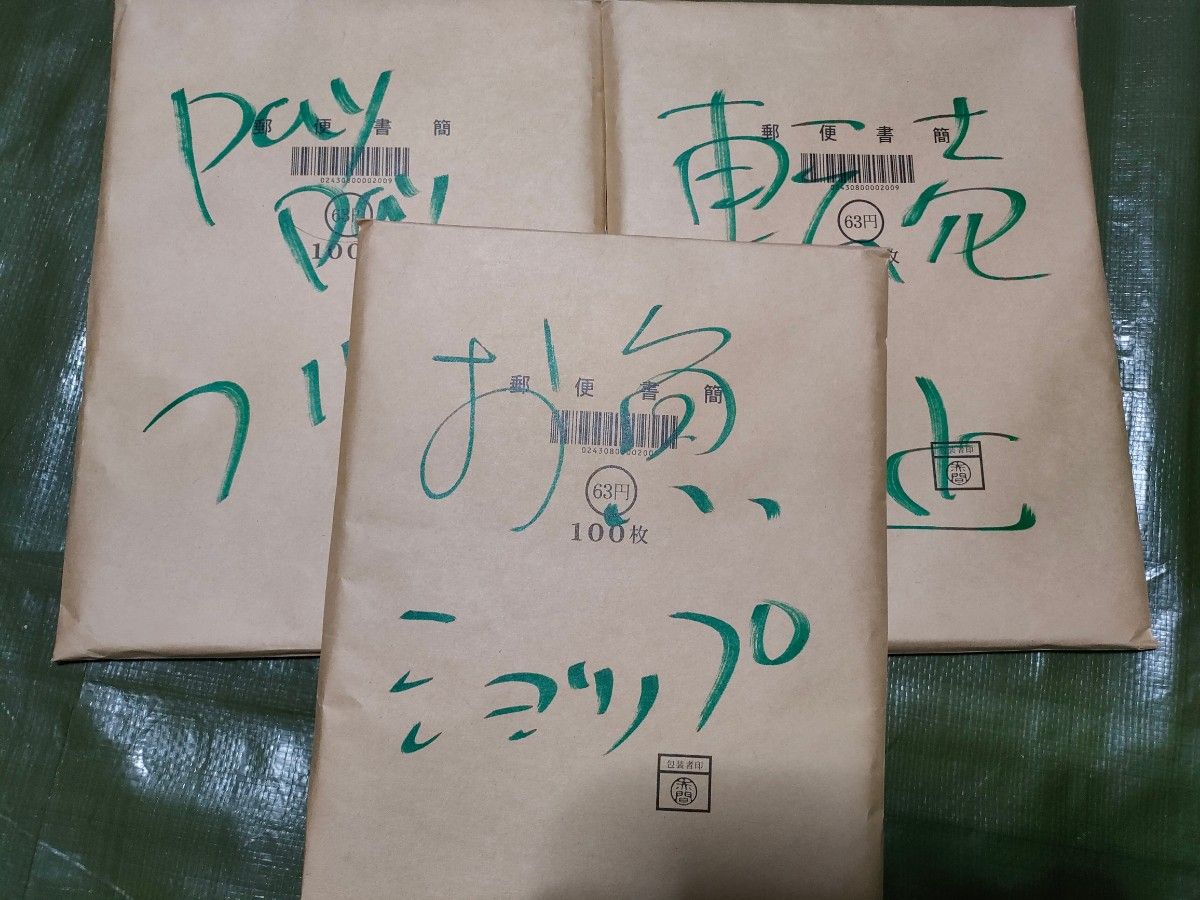 pay
郵便書簡
02430800002009
pay
63円
100
フリ
転売
郵便書簡
02430800002009
63円
枚
止
包装者印
赤間
お魚
郵便書簡
63円
100枚
ショップ
包装者印
赤間